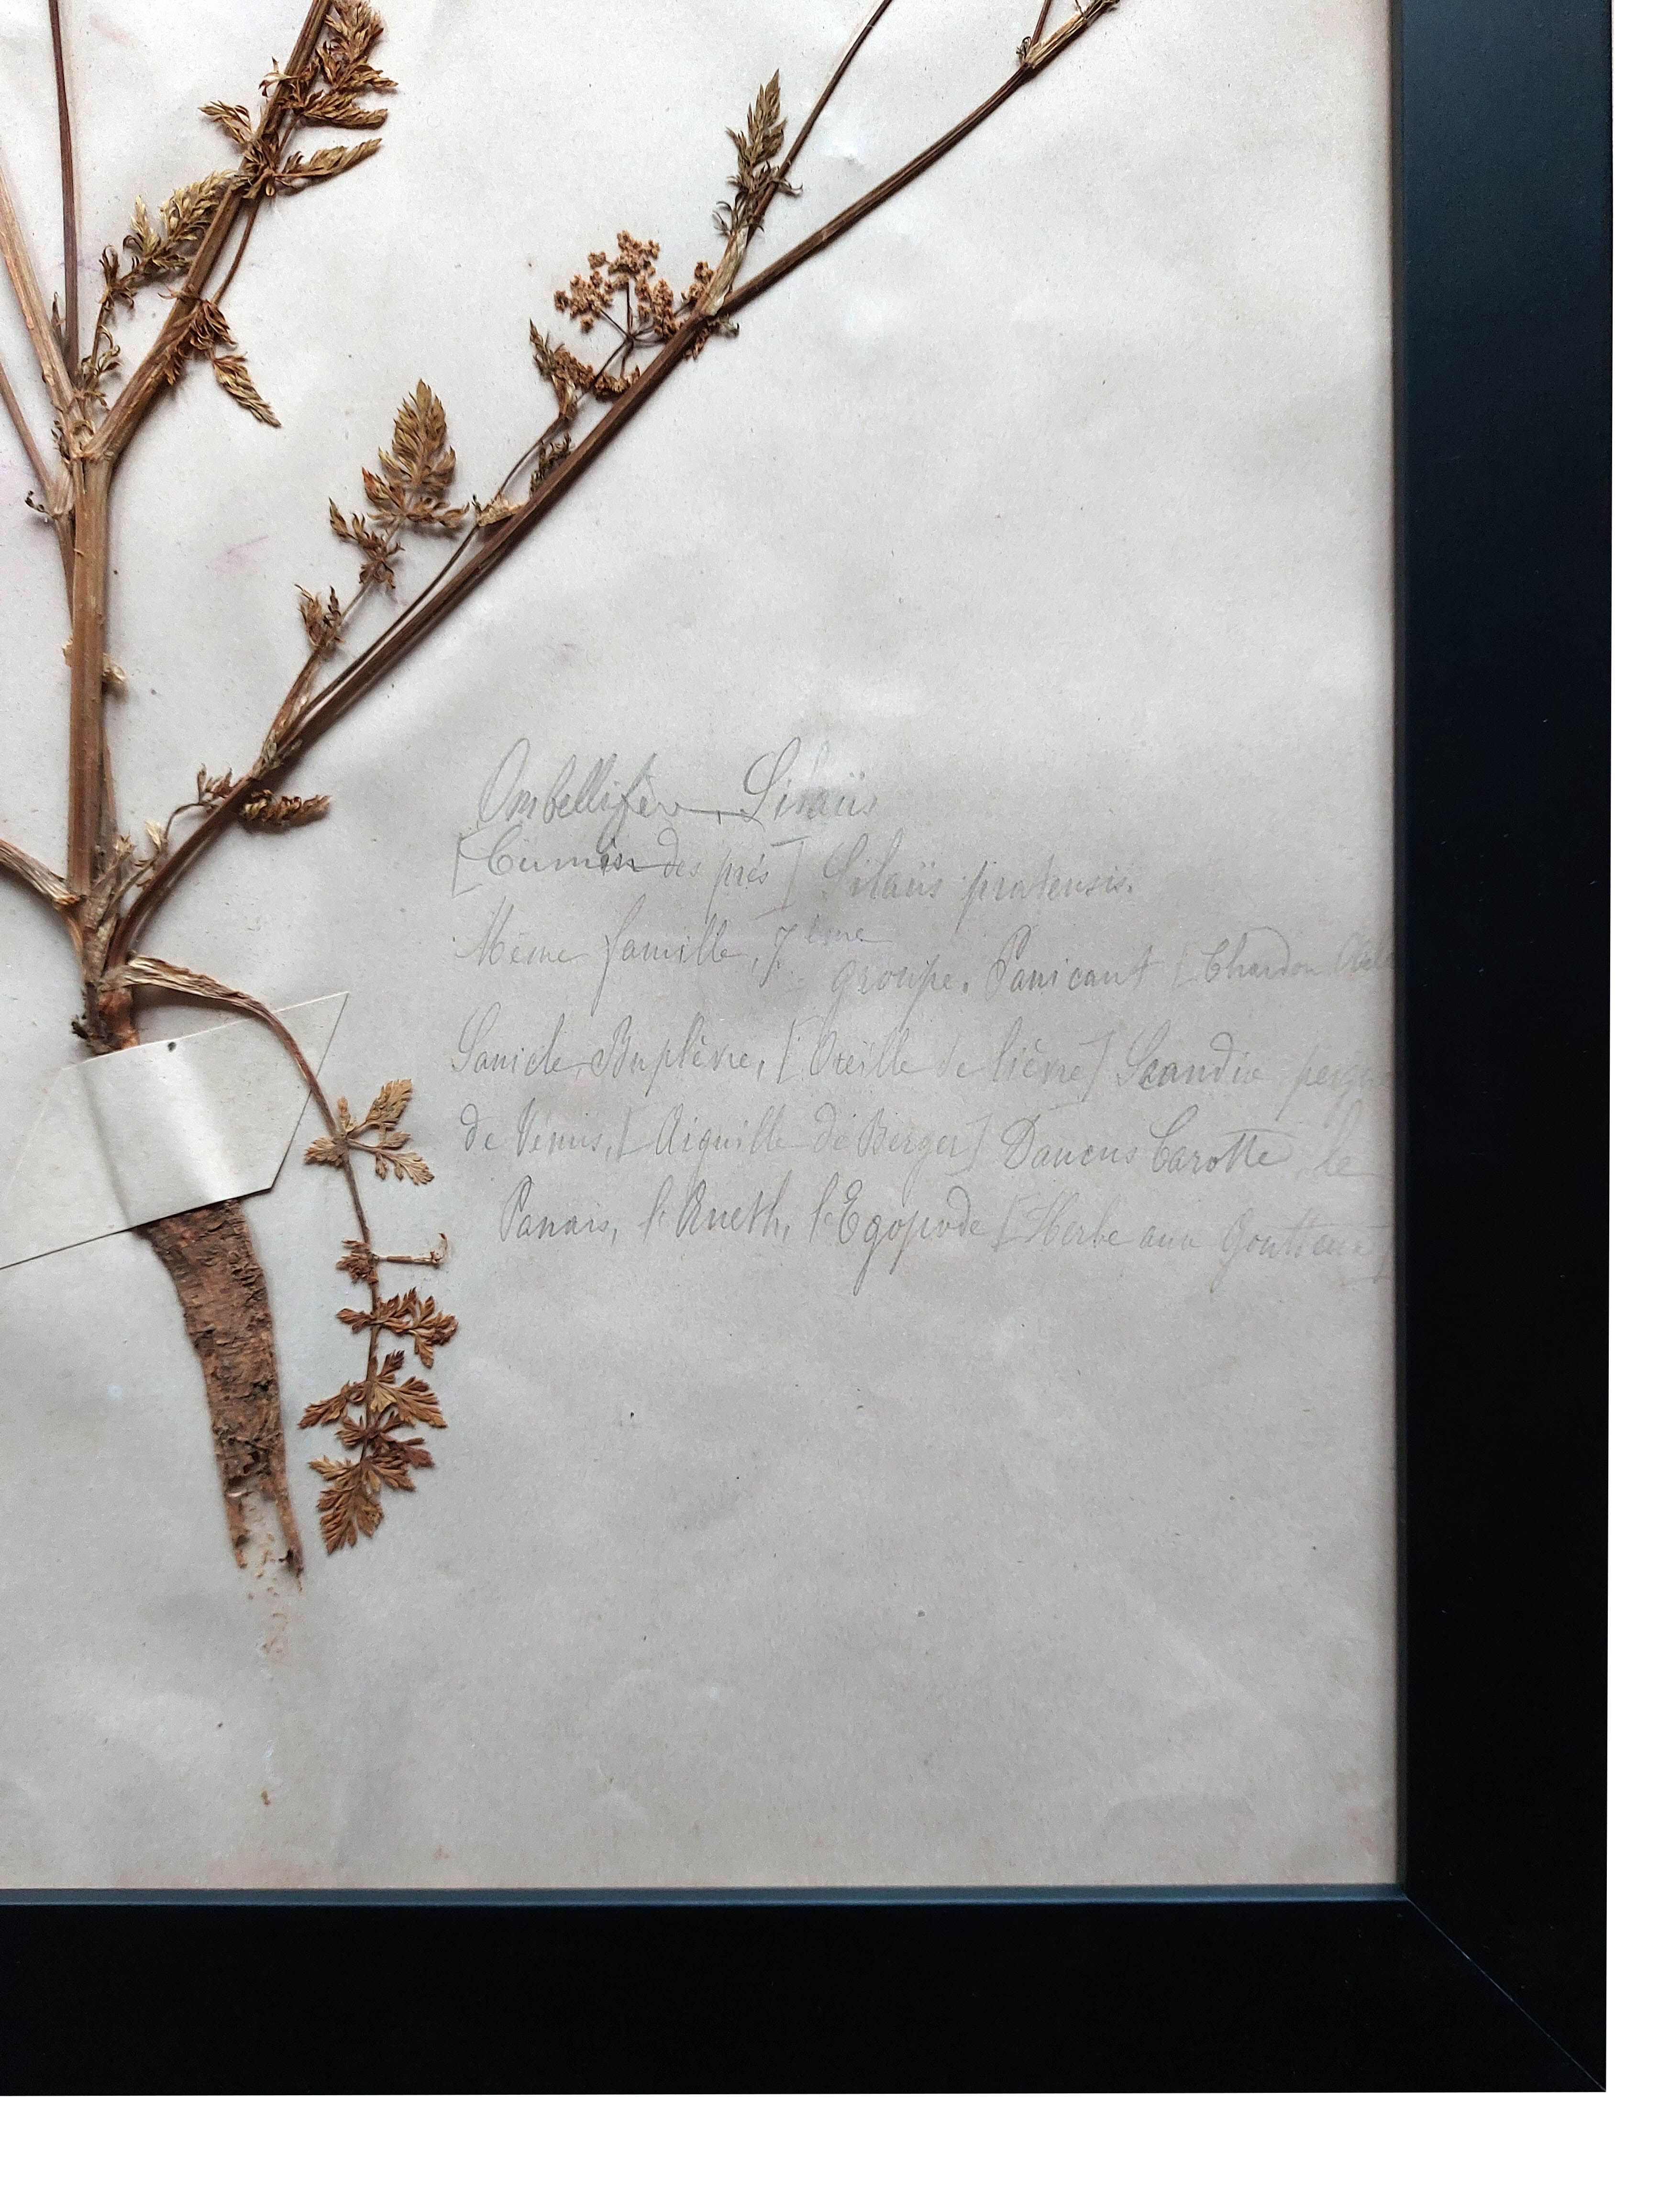 Ombellifère, Silaüs
[Cumin des prés] Silaüs pratensis.
Même famille, 7ème groupe. Panicaut [Chardon
Sanicle, Buplèvre, [Oreille de lièvre] Scandix
de Venus, [Aiguille de Berger] Daucus Carotte, le
Panais, l'Aneth, l'Egopode [Herbe aux Goutteux]